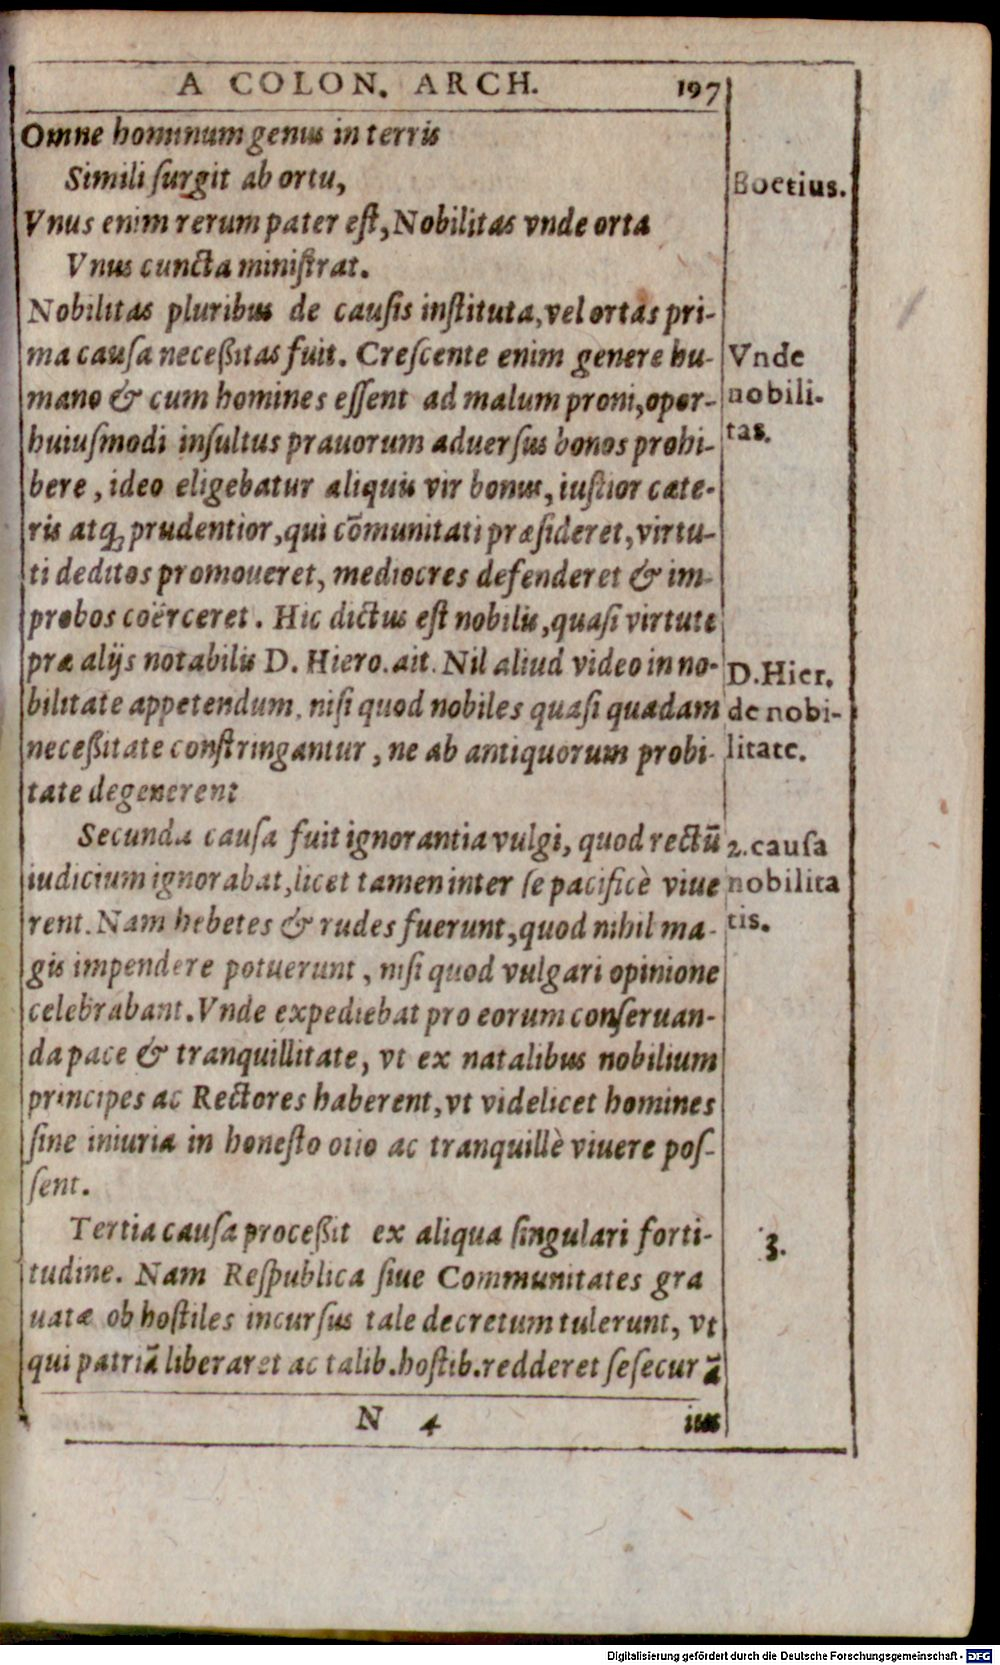 A COLON. ARCH. 197
Omne hominum genus in terris
Simili ſurgit ab ortu,
Boetius.
Vnus enim rerum pater eſt, Nobilitas vnde orta
Vnus cuncta miniſtrat.
Nobilitas pluribus de cauſis inſtituta, vel ortas pri-
ma cauſa neceßitas fuit. Creſcente enim genere hu-
Vnde
mano & cum homines eſſent ad malum proni, opor-
nobili-
huiuſmodi inſultus prauorum aduerſus bonos prohi-
tas.
bere, ideo eligebatur aliquis vir bonus, iuſtior cæte-
ris atq; prudentior, qui cōmunitati præſideret, virtu-
ti deditos promoueret, mediocres defenderet & im-
probos coërceret. Hic dictus eſt nobilis, quaſi virtute
præ alijs notabilis D. Hiero. ait. Nil aliud video in no-
D. Hier.
bilitate appetendum, niſi quod nobiles quaſi quadam
de nobi-
neceßitate conſtringantur, ne ab antiquorum probi-
litate.
tate degenerent
Secunda cauſa fuit ignorantia vulgi, quod rectū
2. cauſa
iudicium ignorabat, licet tamen inter ſe pacificè viue
nobilita
rent. Nam hebetes & rudes fuerunt, quod nihil ma-
tis.
gis impendere potuerunt, niſi quod vulgari opinione
celebrabant. Vnde expediebat pro eorum conſeruan-
da pace & tranquillitate, vt ex natalibus nobilium
principes ac Rectores haberent, vt videlicet homines
ſine iniuria in honeſto otio ac tranquillè viuere poſ-
ſent.
Tertia cauſa proceßit ex aliqua ſingulari forti-
3.
tudine. Nam Reſpublica ſiue Communitates gra
uatæ ob hoſtiles incurſus tale decretum tulerunt, vt
qui patriā liberaret ac talib. hoſtib. redderet ſe ſecurā
N 4 ius
Digitalisierung gefördert durch die Deutsche Forschungsgemeinschaft - DFG